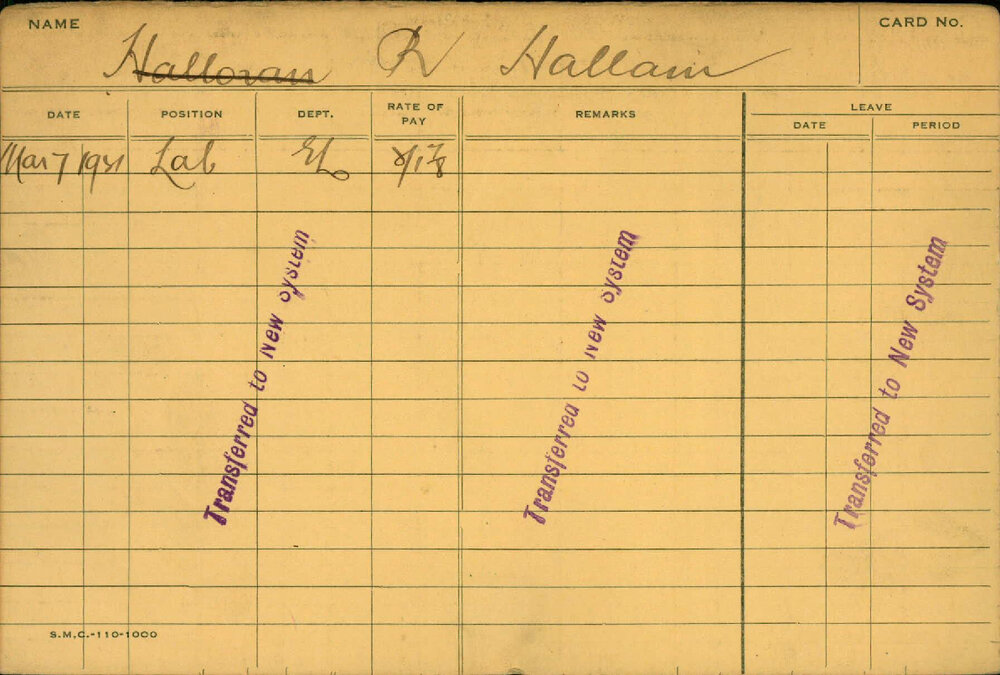 NAME Halloran R Hallam CARD No.
DATE POSITION DEPT. RATE OF PAY REMARKS LEAVE
DATE PERIOD
Mar 7 1931 Lab EL
Transferred to New System
Transferred to New System
Transferred to New System
S.M.C.-110-1000